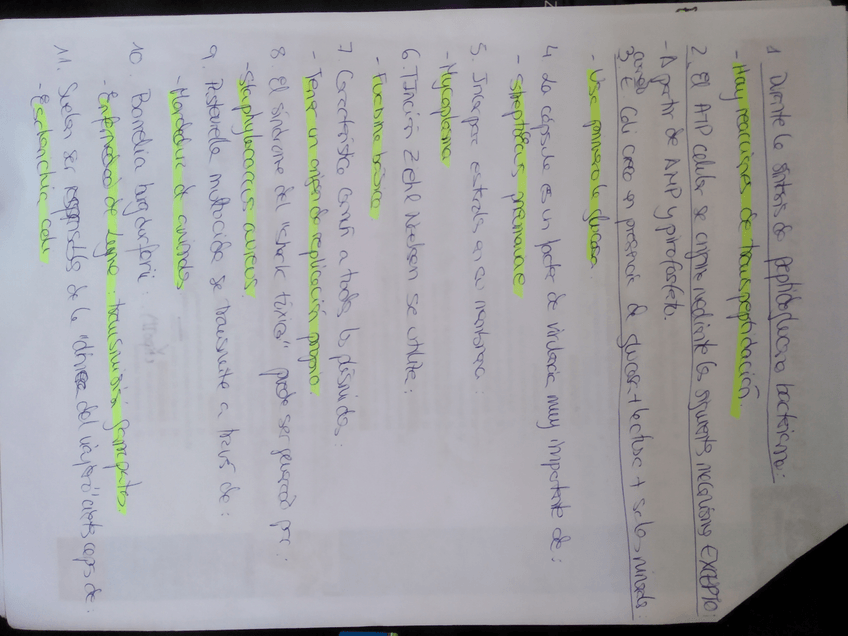 1 Durante la síntesis de peptidoglucano bacteriano:
- Hay reacciones de transpeptidación.
2. El ATP celular se origina mediante los siguientes mecanismos EXCEPTO:
- A partir de AMP y pirofosfato.
3. E. Coli crece en presencia de glucosa + lactosa + sales minerales:
- Usa primero la glucosa.
4. La cápsula es un factor de virulencia muy importante de:
- Streptococcus pneumoniae
5. Incorpora esteroles en su membrana:
- Mycoplasma
6. Tinción Ziehl Neelsen se utiliza:
- Fucsina básica
7. Característica común a todos los plásmidos:
- Tener un origen de replicación propio.
8. El síndrome del "shock tóxico" puede ser generado por:
- Staphylococcus aureus.
9. Pasteurella multocida se transmite a través de:
- Mordedura de animales
10. Borrelia burgdorferii:
- Enfermedad de Lyme: transmisión garrapatas.
11. Suelen ser responsables de la diarrea del viajero ciertas cepas de:
- Escherichia coli.